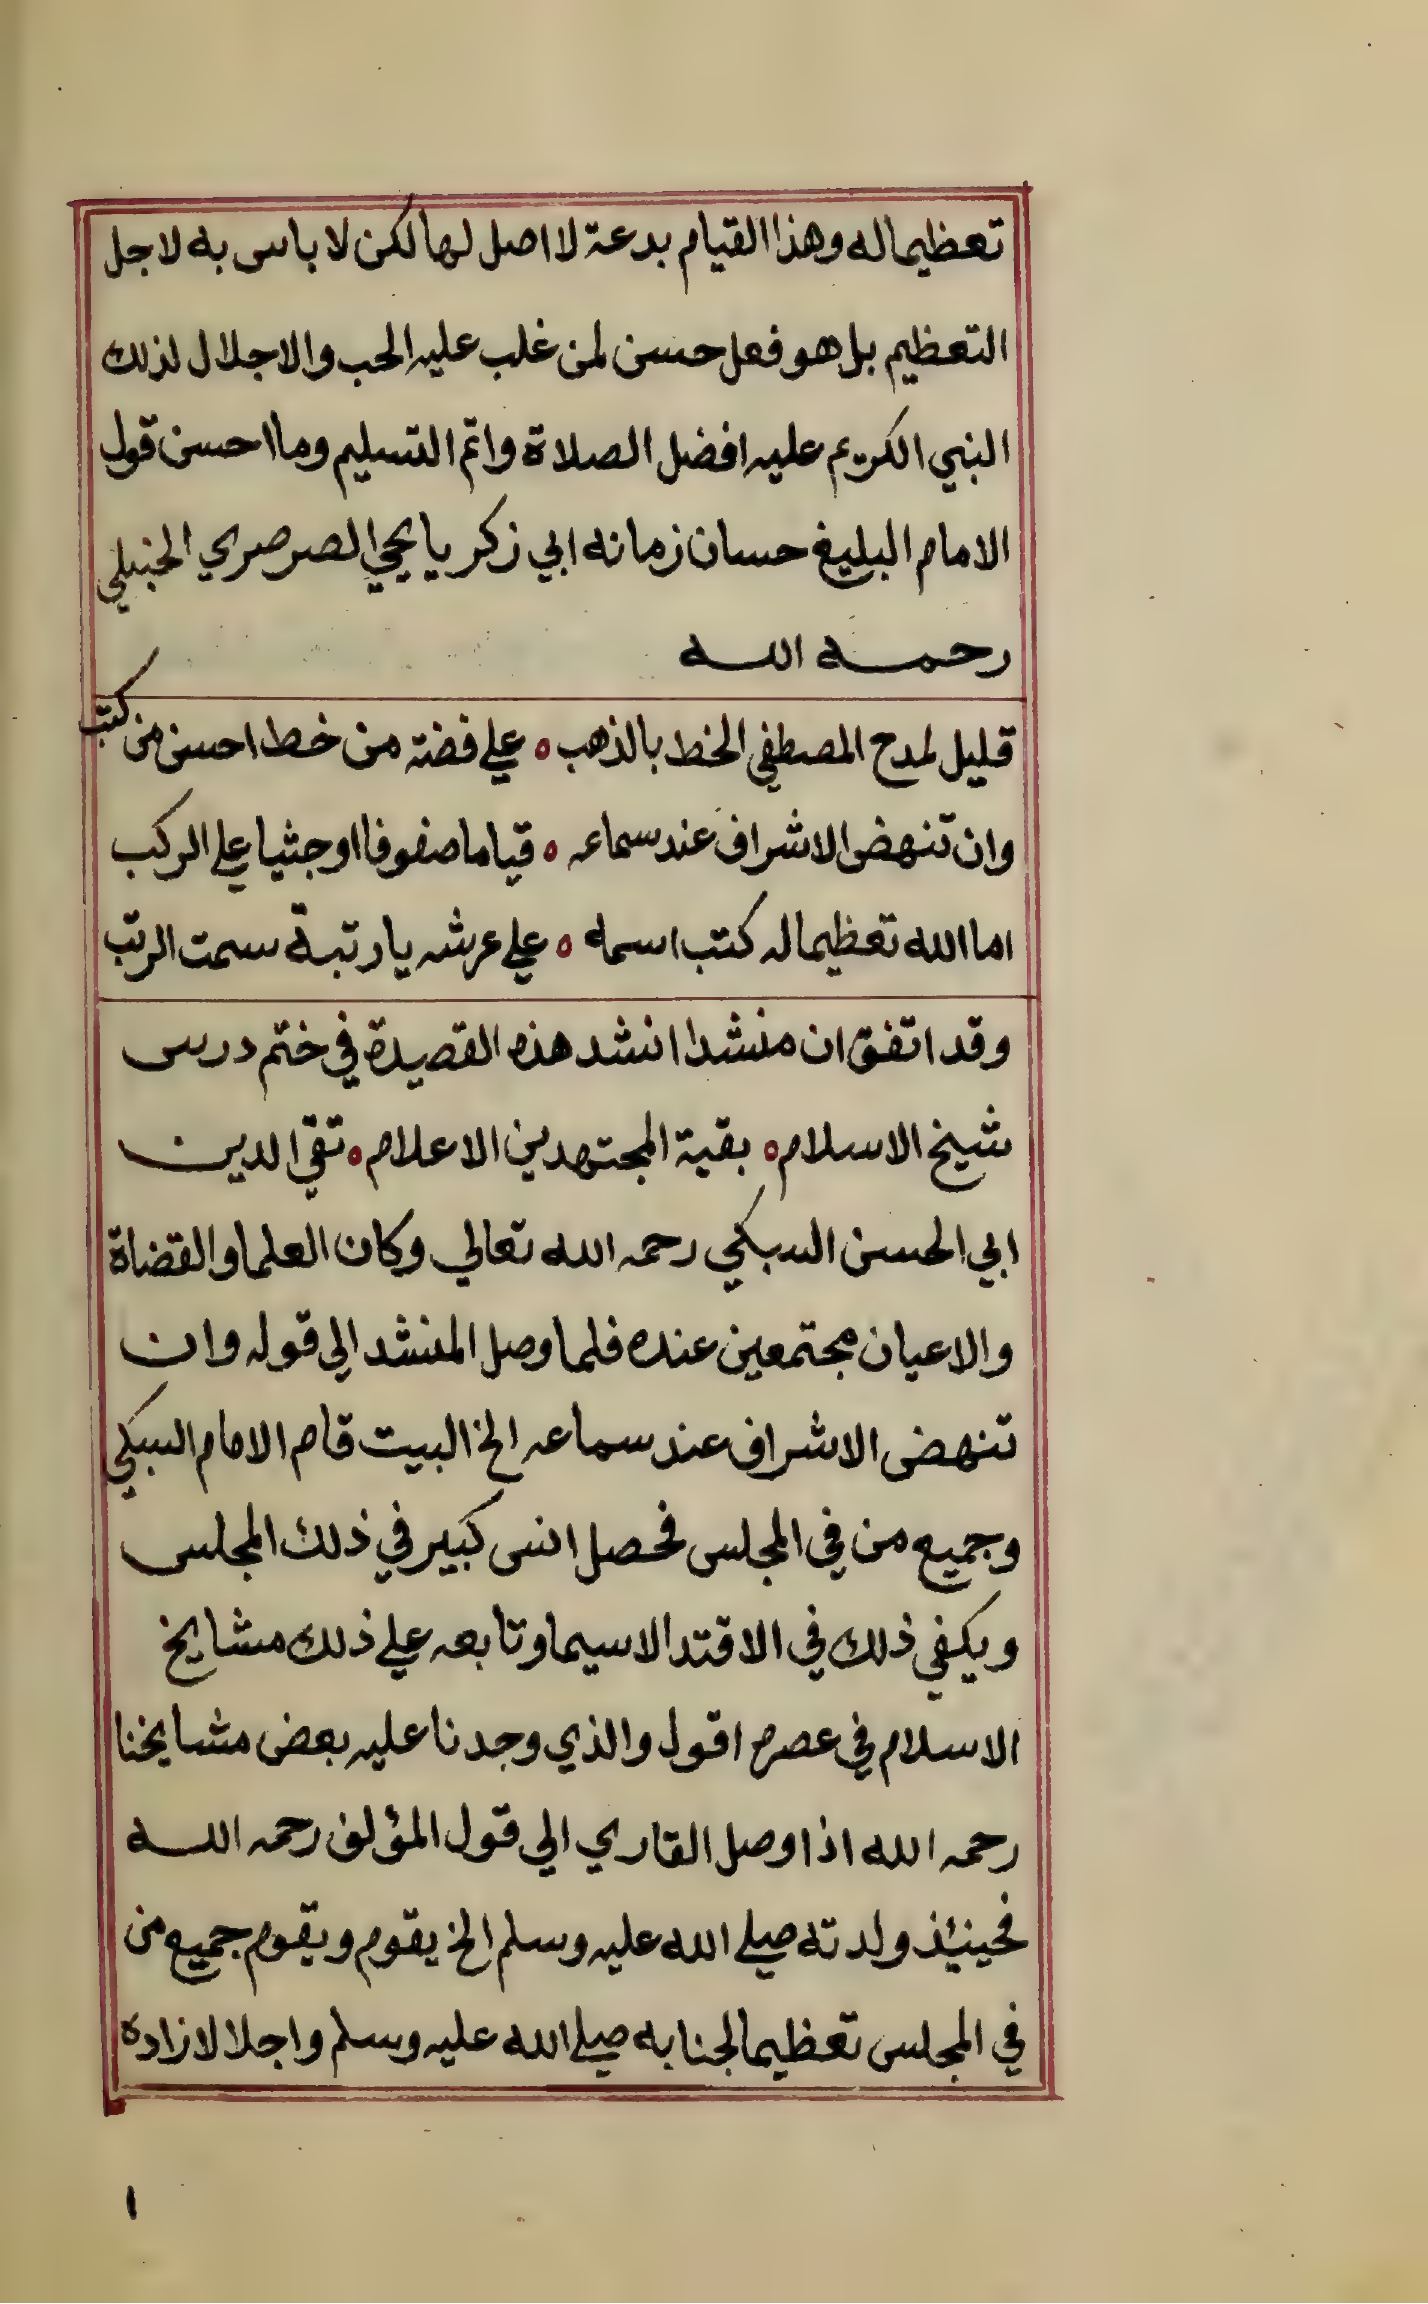 تعظيما له وهذا القيام بدعة لا اصل لها لكن لا باس به لاجل
التعظيم بل هو فعل حسن لمن غلب عليه الحب والاجلال لذلك
النبي الكريم عليه افضل الصلاة واتم التسليم وما احسن قول
الامام البليغ حسان زمانه ابي زكريا يحيي الصرصري الحنبلي
رحمه الله
قليل لمدح المصطفي الخط بالذهب ه علي فضة من خط احسن من كتب
وان تنهض الاشراف عند سماعه ه قياما صفوفا او جثيا علي الركب
اما الله تعظيما له كتب اسمه ه علي عرشه يا رتبة سمت الرتب
وقد اتفق ان منشدا انشد هذه القصيدة في ختم درس
شيخ الاسلام ه بقية المجتهدين الاعلام ه تقي الدين
ابي الحسن السبكي رحمه الله تعالي وكان العلما والقضاة
والاعيان مجتمعين عنده فلما وصل المنشد الي قوله وان
تنهض الاشراف عند سماعه الخ البيت قام الامام السبكي
وجميع من في المجلس فحصل انس كبير في ذلك المجلس
ويكفي ذلك في الاقتدا لاسيما وتابعه علي ذلك مشايخ
الاسلام في عصره اقول والذي وجدنا عليه بعض مشايخنا
رحمه الله اذا وصل القاري الي قول المؤلف رحمه الله
فحينئذ ولدته صلي الله عليه وسلم الخ يقوم ويقوم جميع من
في المجلس تعظيما لجنابه صلي الله عليه وسلم واجلالا زاده
ا